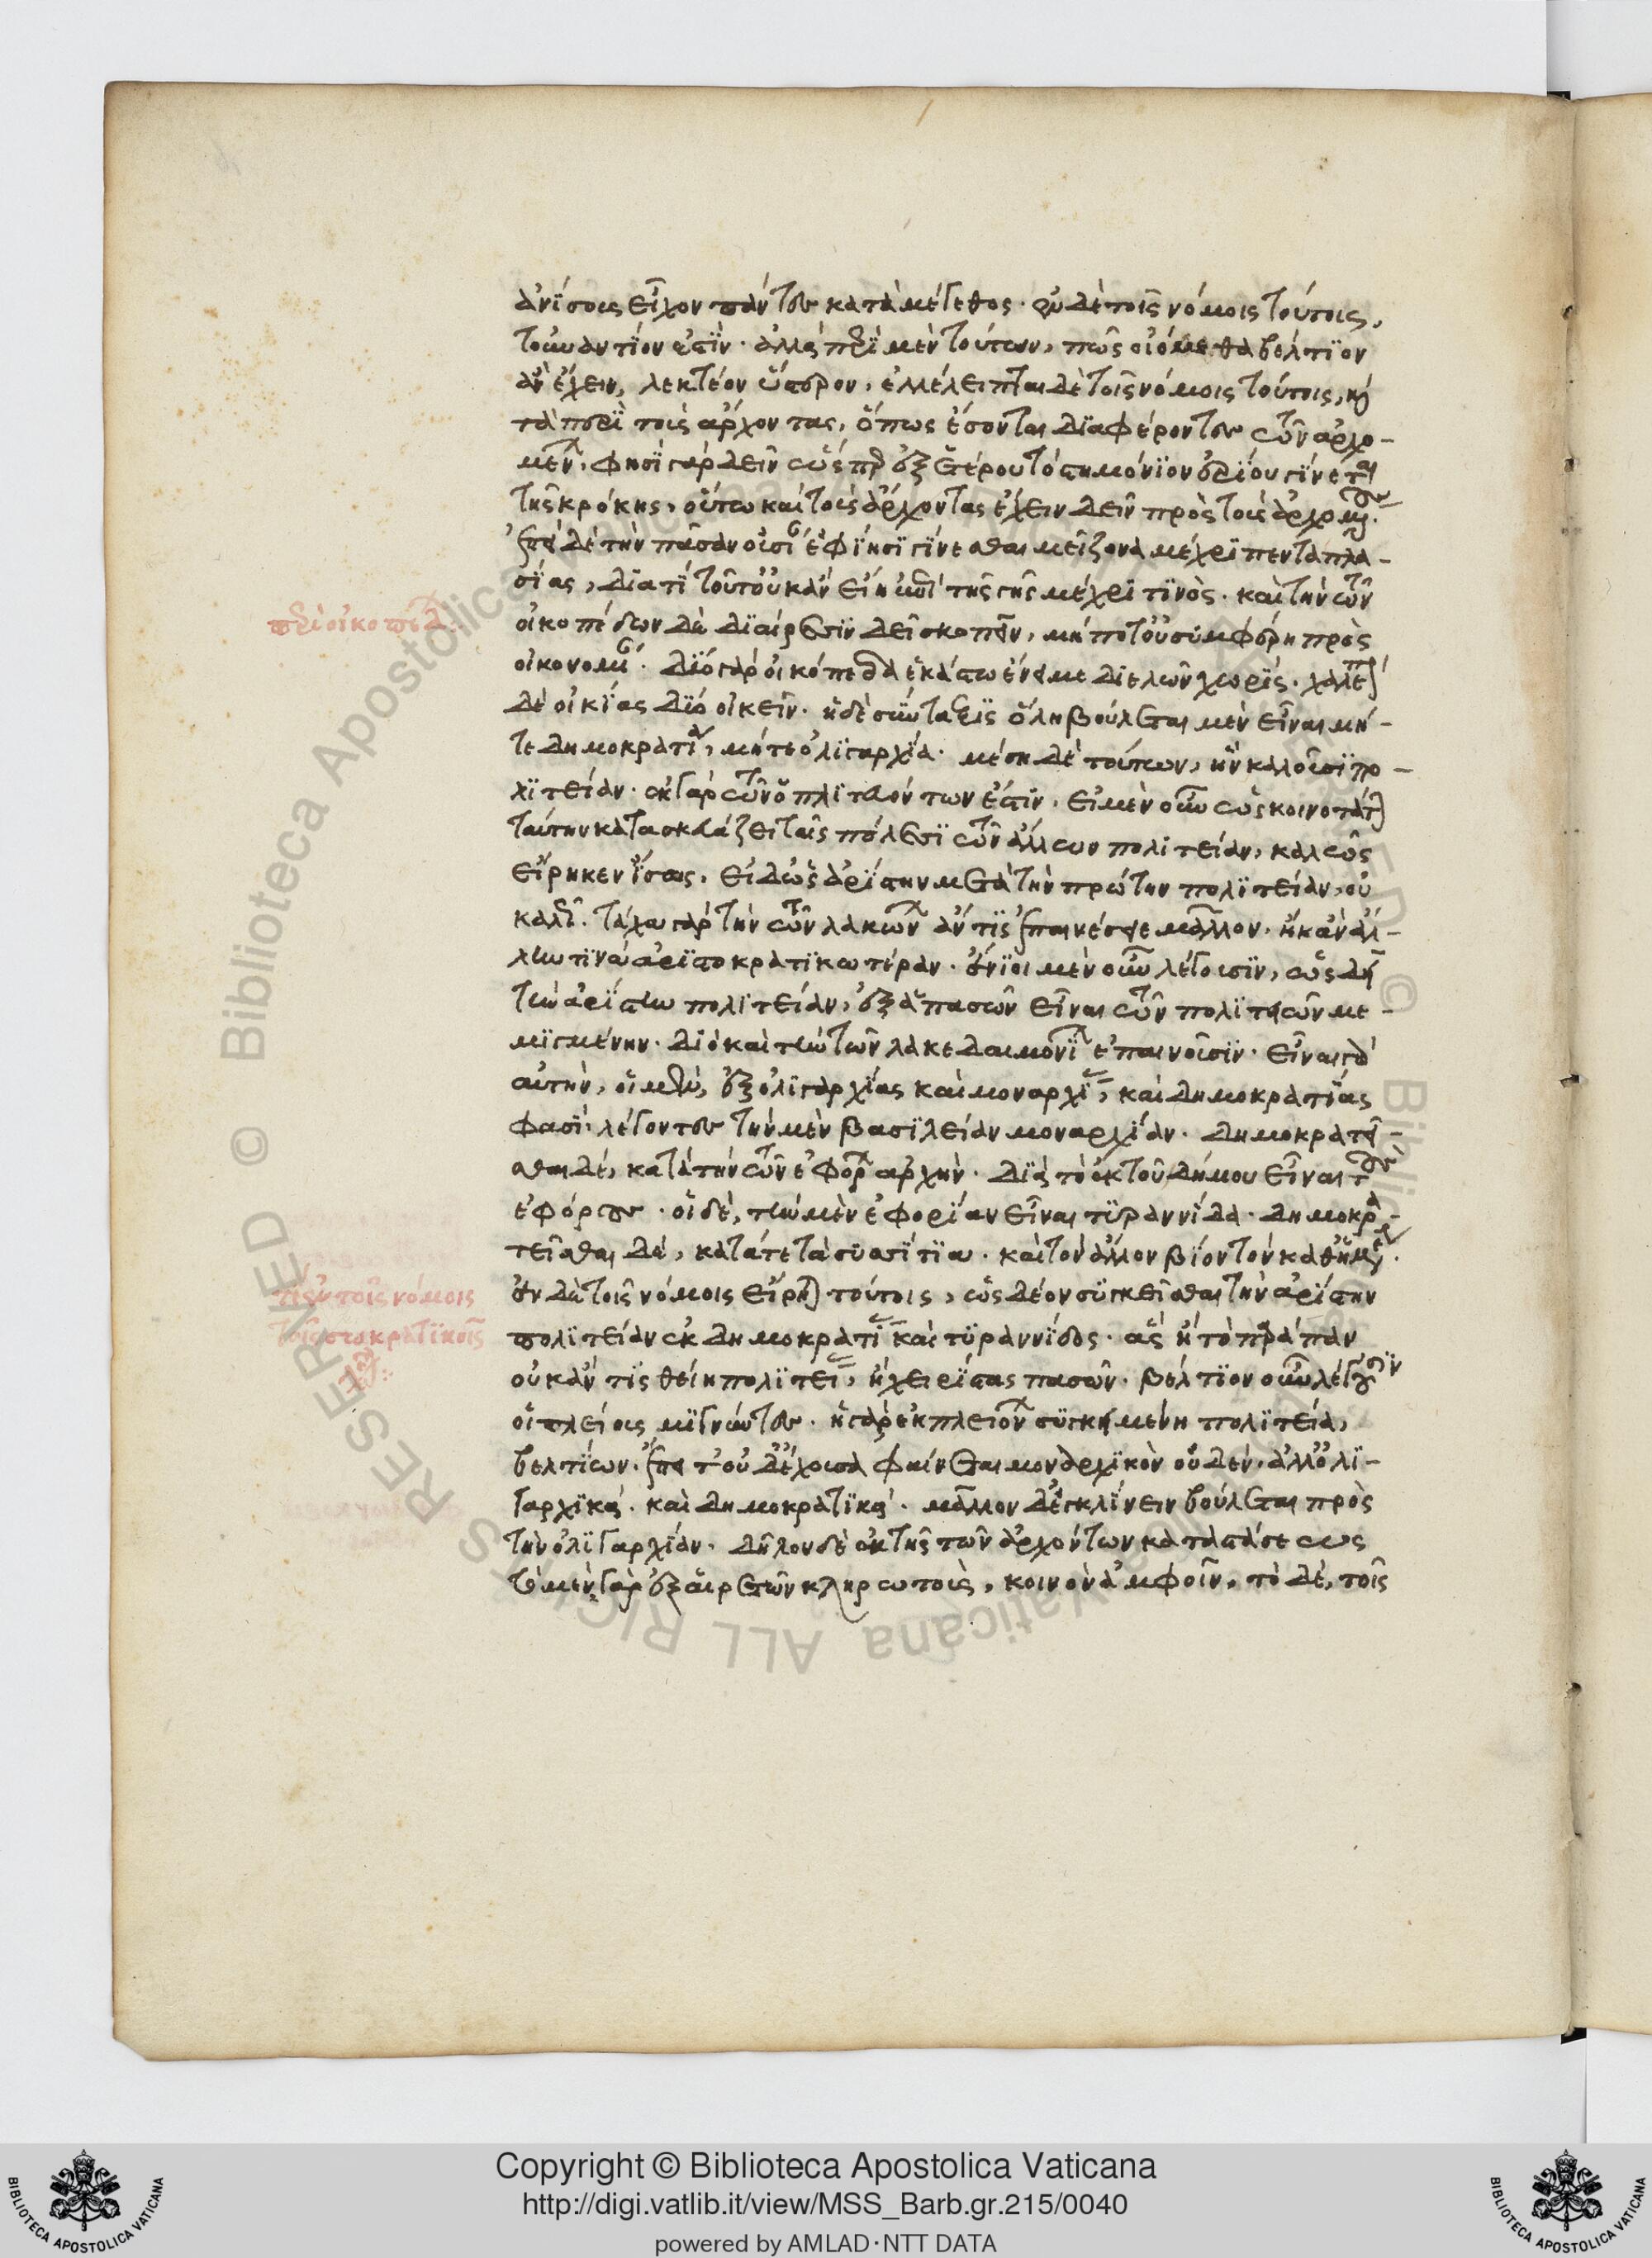 ἀνίσους εἶχον πάντες κατὰ μέγεθος· ἐν δὲ τοῖς νόμοις τούτοις,
τοὐναντίον ἐστίν· ἀλλὰ περὶ μὲν τούτων, πῶς οἰόμεθα βέλτιον
ἂν ἔχειν, λεκτέον ὕστερον, ἐλλέλειπται δὲ τοῖς νόμοις τούτοις, καὶ
τὰ περὶ τοὺς ἄρχοντας, ὅπως ἔσονται διαφέροντες τῶν ἀρχο-
μένων, φησὶ γὰρ δεῖν ὥσπερ ἐξ ἑτέρου τὸ στημόνιον ἐρίου γίνεται
τῆς κρόκης, οὕτω καὶ τοὺς ἄρχοντας ἔχειν δεῖν πρὸς τοὺς ἀρχομένους.
ἐπεὶ δὲ τὴν πᾶσαν οὐσίαν ἐφίησι γίνεσθαι μείζονα μέχρι πενταπλα-
σίας, διατί τοῦτ' οὐκ ἂν εἴη ἐπὶ τῆς γῆς μέχρι τινός· καὶ τὴν τῶν
περὶ οἰκοπέδων
οἰκοπέδων δὲ διαίρεσιν δεῖ σκοπεῖν, μή ποτ' οὐ συμφέρη πρὸς
οἰκονομίαν· δύο γὰρ οἰκόπεδα ἑκάστω ἔνειμε διελὼν χωρίς· χαλεπὸν
δὲ οἰκίας δύο οἰκεῖν· ἡ δὲ σύνταξις ὅλη βούλεται μὲν εἶναι μή-
τε δημοκρατία, μήτε ὀλιγαρχία· μέση δὲ τούτων, ἣν καλοῦσι πο-
λιτείαν· ἐκ γὰρ τῶν ὁπλιτευόντων ἐστίν. εἰ μὲν οὖν ὡς κοινοτάτην
ταύτην κατασκευάζει ταῖς πόλεσι τῶν ἄλλων πολιτείαν, καλῶς
εἴρηκεν ἴσως. εἰ δ' ὡς ἀρίστην μετὰ τὴν πρώτην πολιτείαν, οὐ
καλῶς. τάχα γὰρ τὴν τῶν λακώνων ἄν τις ἐπαινέσειε μᾶλλον, ἢ κἂν ἄλ-
λην τινὰ ἀριστοκρατικωτέραν· ἔνιοι μὲν οὖν λέγουσιν, ὡς δεῖ
τὴν ἀρίστην πολιτείαν, ἐξ ἁπασῶν εἶναι τῶν πολιτειῶν με-
μιγμένην· διὸ καὶ τὴν τῶν λακεδαιμονίων ἐπαινοῦσιν· εἶναι γὰρ
αὐτὴν, οἱ μὲν, ἐξ ὀλιγαρχίας καὶ μοναρχίας, καὶ δημοκρατίας
φασὶ· λέγοντες τὴν μὲν βασιλείαν μοναρχίαν· δημοκρατεῖ-
σθαι δὲ, κατὰ τὴν τῶν ἐφόρων ἀρχήν· διὰ τὸ ἐκ τοῦ δήμου εἶναι τοὺς
ἐφόρους· οἱ δὲ, τὴν μὲν ἐφορίαν εἶναι τυραννίδα· δημοκρα-
τεῖσθαι δὲ, κατά τε τὰ συσσίτια· καὶ τὸν ἄλλον βίον τὸν καθ' ἡμέραν.
ὅτι ἐν τοῖς νόμοις
ἐν δὲ τοῖς νόμοις εἴρηται τούτοις, ὡς δέον συγκεῖσθαι τὴν ἀρίστην
πολιτείαν ἐκ δημοκρατίας καὶ τυραννίδος· ἃς ἢ τὸ παράπαν
οὐκ ἄν τις θείη πολιτείας, ἢ χειρίστας πασῶν. βέλτιον οὖν λέγουσιν
οἱ πλείους μιγνύντες· ἡ γὰρ ἐκ πλειόνων συγκειμένη πολιτεία,
βελτίων. ἔπειτ' οὐδ' ἔχουσα φαίνεται μοναρχικὸν οὐδέν, ἀλλ' ὀλι-
γαρχικὰ· καὶ δημοκρατικά· μᾶλλον δ' ἐγκλίνειν βούλεται πρὸς
τὴν ὀλιγαρχίαν· δῆλον δὲ ἐκ τῆς τῶν ἀρχόντων καταστάσεως
τὸ μὲν γὰρ ἐξ αἱρετῶν κληρωτοὺς, κοινὸν ἀμφοῖν, τὸ δὲ, τοῖς
Copyright © Biblioteca Apostolica Vaticana
http://digi.vatlib.it/view/MSS_Barb.gr.215/0040
powered by AMLAD·NTT DATA